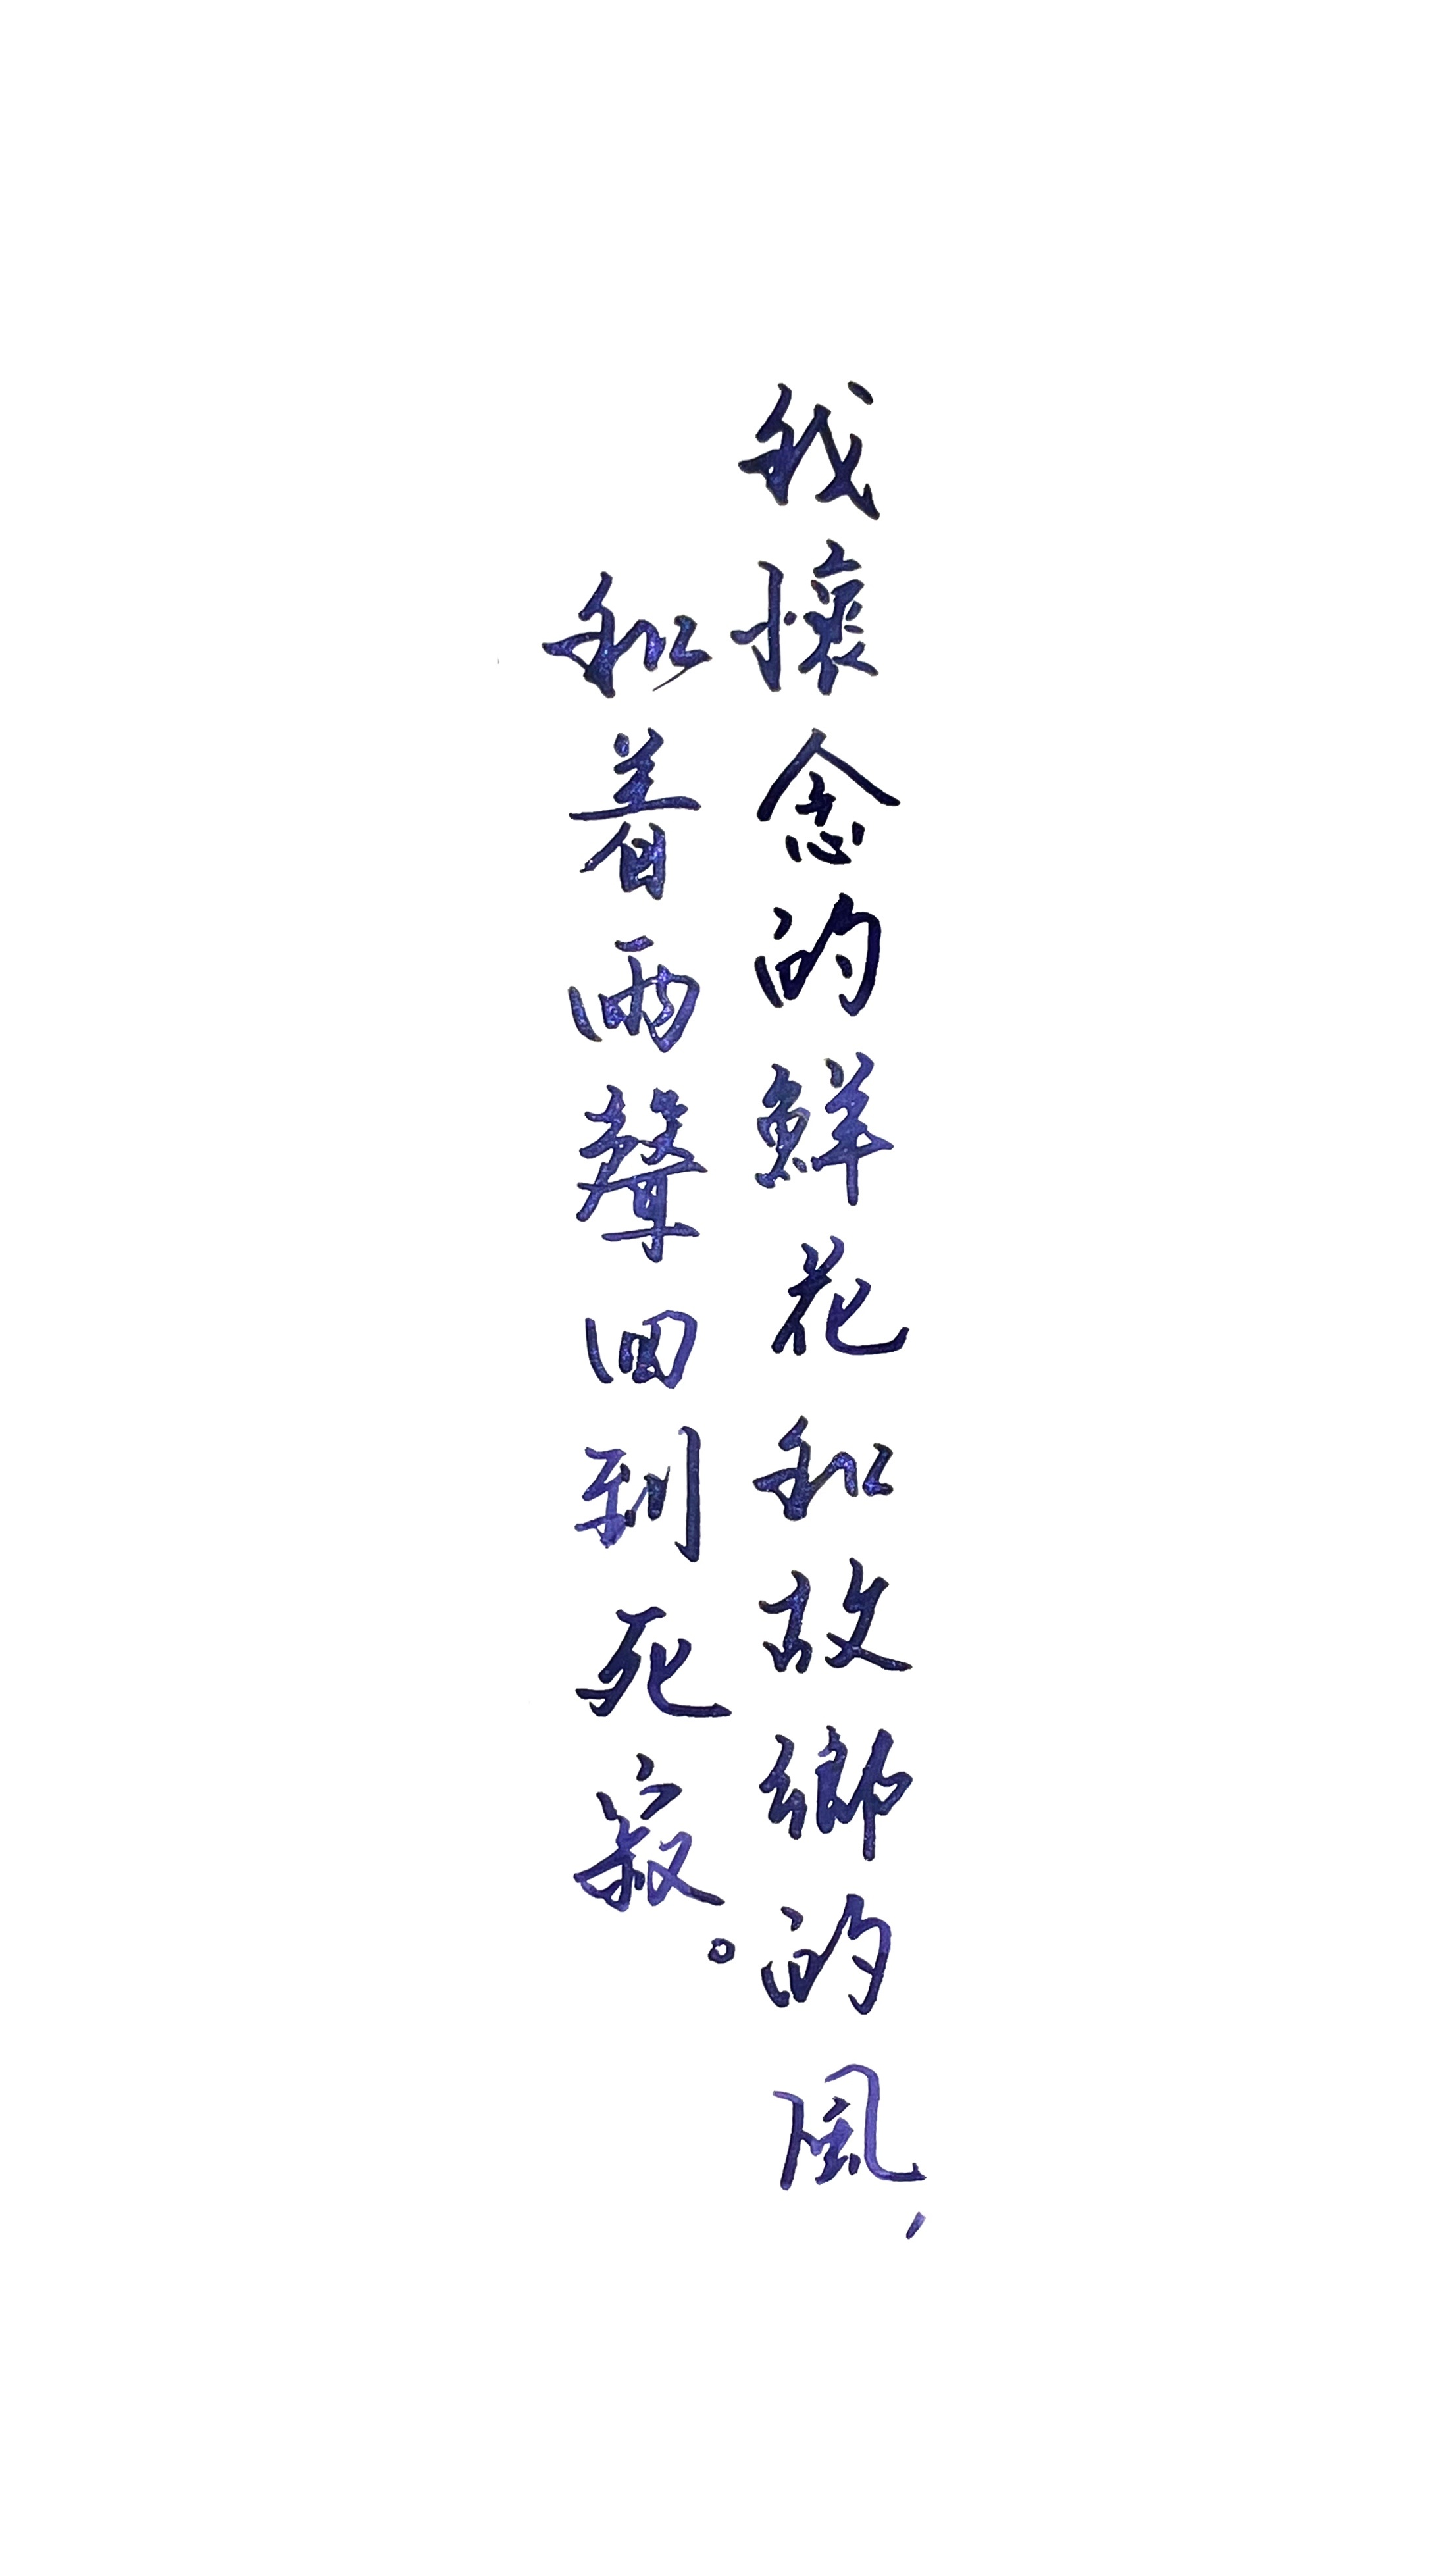 我懷念的鮮花和故鄉的風，
和着雨聲回到死寂。